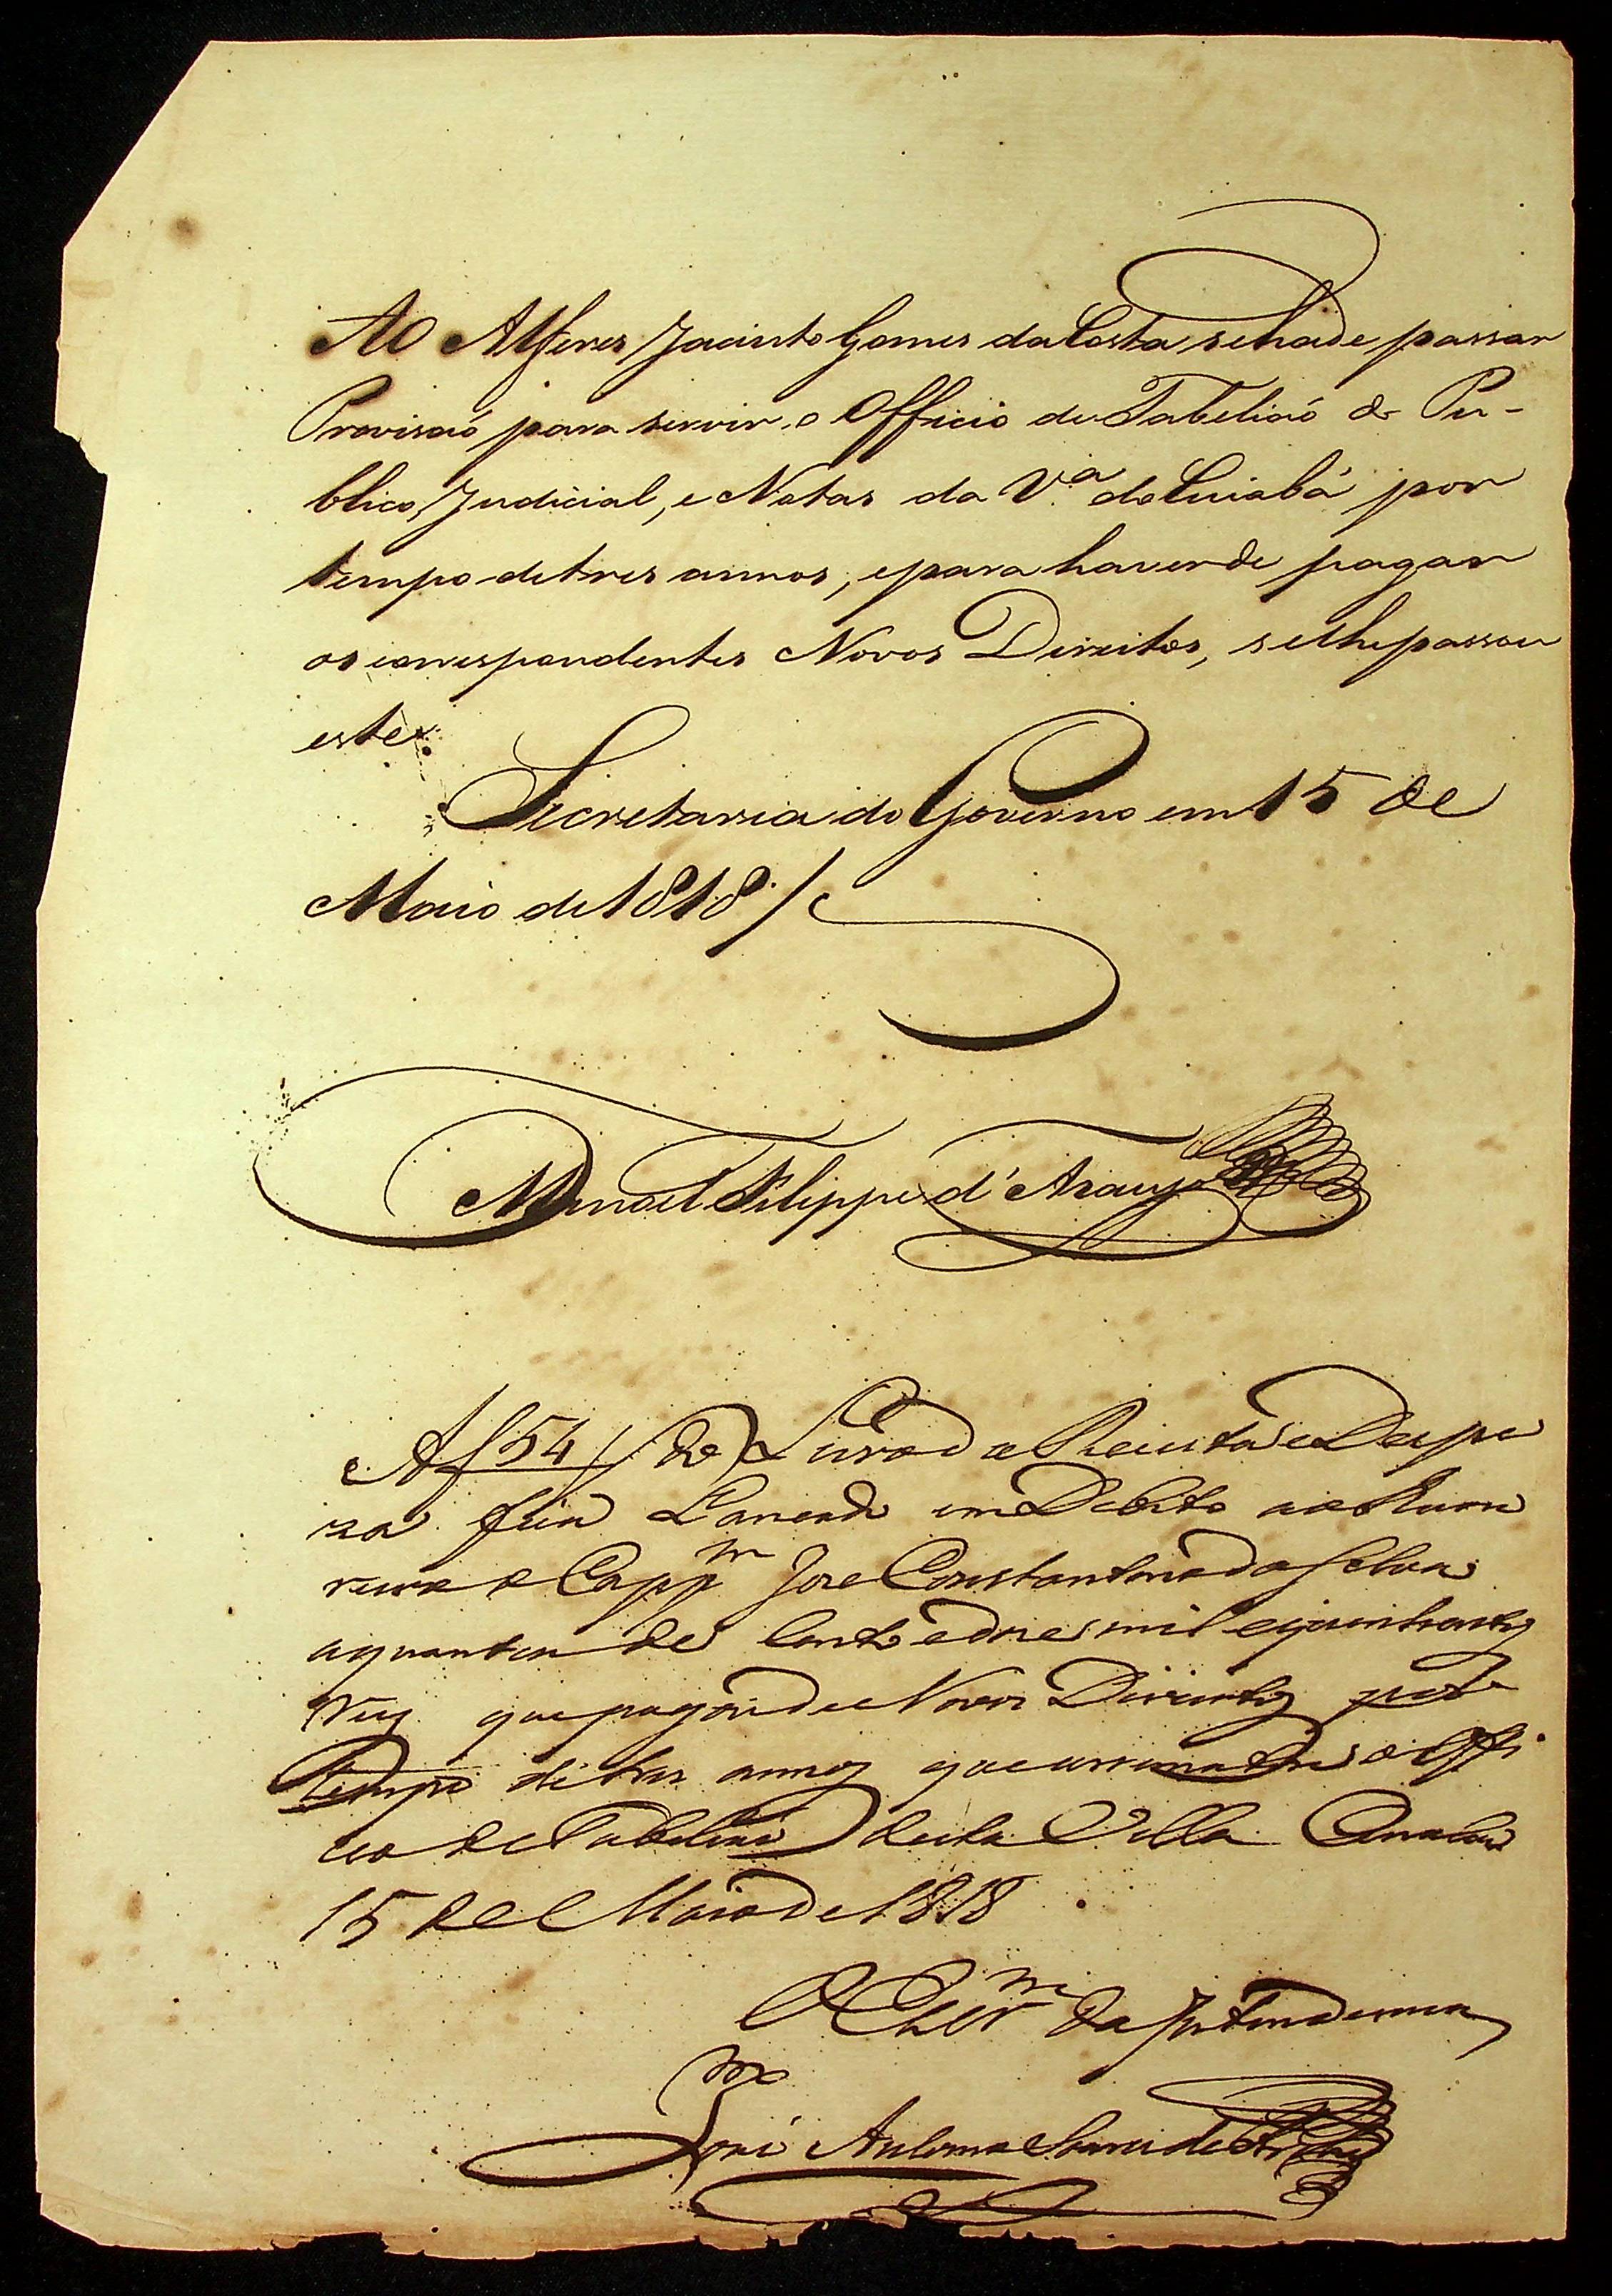 Ao Alferes Jacinto Gomes da Costa se hade passar
Provisaõ para servir o Officio de Tabeliaõ do Pu-
blico, Judicial, e Notas da V.ª do Cuiabá por
tempo de tres annos; e para haver de pagar
os correspondentes Novos Direitos, se lhe passou
este.
Secretaria do Governo em 15 de
Maio de 1818/
Manoel Filippe d'Araujo
A f 54 do Livro da Receita e Despe
za fica Lancado em Debito ao
o Capp.m Joze Constantino da Silva
a quantia de Cento e doze mil e quinhentos
reis que pagou de Novos Direitos pelo
tempo de tres annos que o Offi
cio de Tabeliaõ desta Villa Cuiabá
15 de Maio de 1818
O da Intendencia
José Antonio Soares de